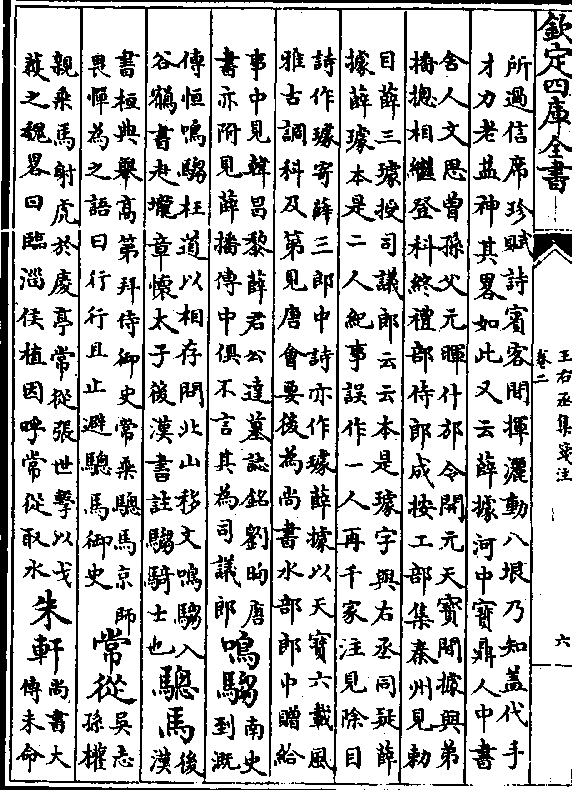 欽定四庫全書
王右丞集箋注
卷二
六
所過信席珍賦詩賓客間揮灑動八垠乃知蓋代手
才力老益神其畧如此又云薛據河中寳鼎人中書
舍人文思曾孫父元暉什邡令開元天寳間據與弟
播摠相繼登科終禮部侍郎成按工部集秦州見勅
目薛三璩授司議郎云云本是璩字與右丞同疑薛
據薛璩本是二人紀事誤作一人再千家注見除目
詩作璩寄薛三郎中詩亦作璩薛據以天寳六載風
雅古調科及第見唐會要後為尚書水部郎中贈給
事中見韓昌黎薛君公達墓誌銘劉昫唐
書亦附見薛播傳中俱不言其為司議郎
鳴騶
南史
到溉
傳恒鳴騶枉道以相存問北山移文鳴騶入
谷鶴書赴壠章懷太子後漢書註騶騎士也
驄馬
後
漢
書桓典舉高第拜侍御史常乘驄馬京師
畏憚為之語曰行行且止避驄馬御史
常從
吳志
孫權
親乘馬射虎於慶亭常從張世擊以戈
䕶之魏畧曰臨淄侯植因呼常從取水
朱軒
尚書大
傳未命